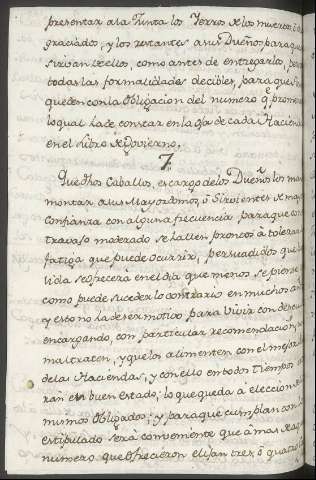 presentar a la Junta los Yerros de los muertos, ô des
graciados, y los restantes a sus Dueños para que se
sirvan de ellos, como antes de entregarlos, pero
todas las formalidades decibles, para que
queden con la Obligacion del numero q.e prome
lo qual ha de constar en la de cada Hacienda
en el Libro de Govierno.
7.
Que dhos Caballos, en cargo de los Dueños los man
montar a sus Mayordomos, ô Sirvientes de mayor
confianza con alguna frecuencia para que con
travajo moderado se hallen promtos à tolerar
fatiga que puede ocurrir, persuadidos que
lida se ofrecerà en el dia que menos se piense
como puede suceder lo contrario en muchos años
y esto no ha de ser motivo para vivir con descui
encargando, con particular recomendacion, no
maltraten, y que los alimenten con el mejor
de las Haciendas, y con ello en todos tiempos
ran en buen estado; lo que queda â eleccion de
mismos Obligados; y para que cumplan con lo
estipulado serà conveniente que à mas de aq
numero que ofrecieron elijan tres, ô quatro